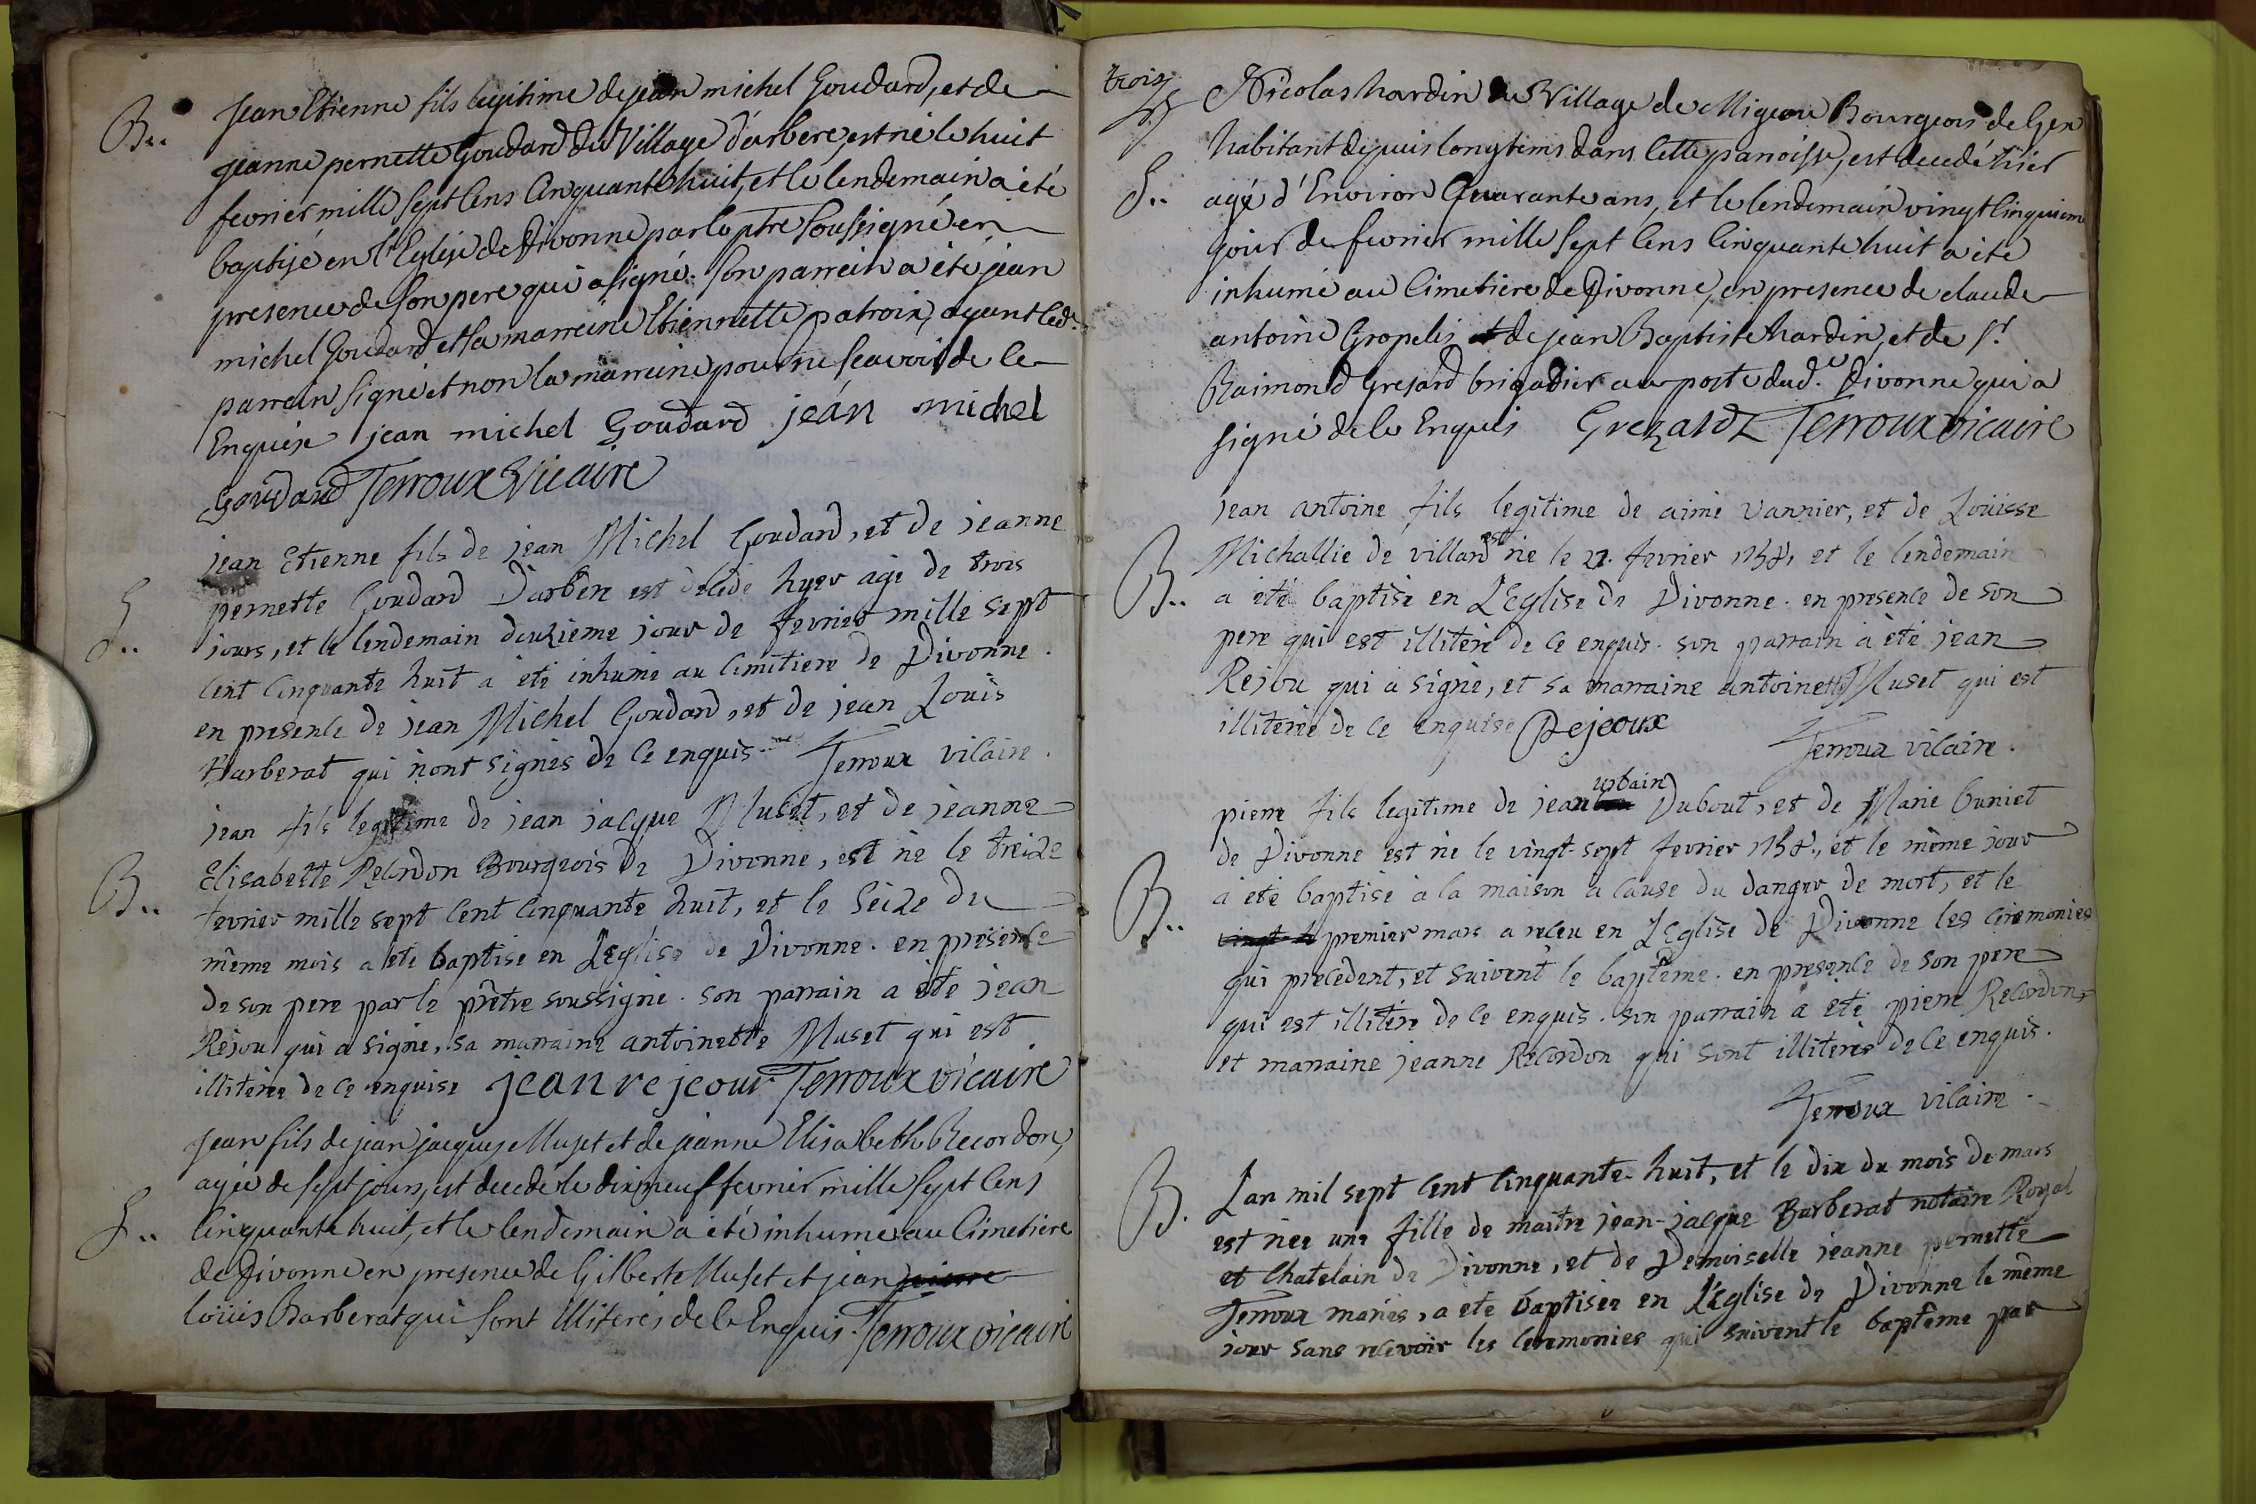 B..
Jean Etienne fils legitime de jean michel Goudard, et de
jeanne pernette Goudard du Village d'arbere, est né le huit
fevrier mille sept Cens Cinquante huit, et le lendemain a été
baptisé en l'Eglise de Divonne par le ptre soussigné en
presence de son pere qui a signé. son parrein a été jean
michel Goudard et sa marreine Etiennette patroix, ayant led.
parrein signé et non la marreine pour ne scavoir de ce
Enquise jean michel Goudard jean michel
Goudard Terroux Vicaire
S..
jean Etienne fils de jean Michel Goudard, et de jeanne
pernette Goudard D'arbere est decede hyer age de trois
jours, et le lendemain douzieme jour de fevrier mille sept
cent cinquante huit a ete inhumé au cimitiere de Divonne.
en presence de jean Michel Goudard, et de jean Louis
Barberat qui n'ont signés de ce enquis. Terroux vicaire.
B..
jean fils legitime de jean jacque Muset, et de jeanne
Elisabette Recordon Bourgeois de Divonne, est né le treize
fevrier mille sept cent cinquante huit, et le seize du
même mois a ete baptise en L'Eglise de Divonne. en presence
de son pere par le prêtre soussigné. son parrain a ete jean
Rejou qui a signé, sa marraine antoinette Muset qui est
illiterée de ce enquise jean rejeour Terroux vicaire
S..
Jean fils de jean jacques Muset et de jeanne Elisabeth Recordon,
agée de sept jours, est decedé le dix neuf fevrier mille sept Cens
Cinquante huit, et le lendemain a été inhumé au Cimetiere
de Divonne en presence de Gilberte Muset et jean pierre
loüis Barberat qui sont illiterés de ce Enquis. Terroux vicaire
trois
S..
Nicolas hardin du Village de Migeou Bourgeois de Gex
habitant depuis longtems dans Cette paroisse, est decedé hier
agé d'Environ Quarante ans, et le lendemain vingt Cinquieme
jour de fevrier mille sept Cens Cinquante huit a été
inhumé au Cimetiere de Divonne, en presence de claude
antoine Gropelis et de jean Baptiste hardin, et de sr.
Raimond Gresard brigadier au poste dud. Divonne qui a
signé de ce Enquis Grezard Terroux vicaire
B..
jean antoine fils legitime de aimé vannier, et de Loüisse
Michallie de villard est né le 27. fevrier 1758, et le lendemain
a eté baptisé en L'Eglise de Divonne. en presence de son
pere qui est illiteré de ce enquis. son parrain a eté jean
Rejou qui a signé, et sa marraine antoinette Muset qui est
illiterée de ce enquise Rejeoux
Terroux vicaire.
B..
pierre fils legitime de jean urbain Dubout, et de Marie buniet
de Divonne est né le vingt-sept fevrier 1758., et le même jour
a eté baptisé a la maison a cause du danger de mort, et le
vingt h premier mars a receu en L'Eglise de Divonne les ceremonies
qui precedent, et suivent le baptême. en presence de son pere
qui est illiteré de ce enquis. son parrain a eté pierre Recordon,
et marraine jeanne Recordon qui sont illiterés de ce enquis.
Terroux vicaire.
B.
L'an mil sept cent cinquante-huit, et le dix du mois de mars
est née une fille de maître jean-jacque Barberat notaire Royal
et Chatelain de Divonne, et de Demoiselle jeanne pernette
Terroux mariés, a ete baptisée en L'Eglise de Divonne le même
jour sans recevoir les ceremonies qui suivent le baptême par